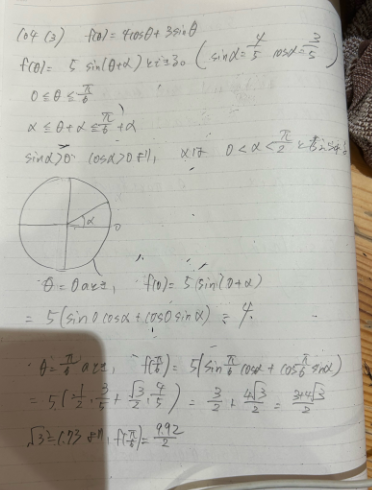 104 (3) f(θ) = 4cosθ + 3sinθ
f(θ) = 5 sin(θ+α) となる。 ( sinα = 4/5 cosα = 3/5 )
0 ≤ θ ≤ π/6
α ≤ θ+α ≤ π/6 + α
sinα>0 cosα>0 より, αは 0 < α < π/2
α
0
θ = 0のとき, f(θ) = 5 sin(0+α)
= 5 (sin0 cosα + cos0 sinα) = 4.
θ = π/6 のとき, f(π/6) = 5(sin π/6 cosα + cos π/6 sinα)
= 5.(1/2 · 3/5 + √3/2 · 4/5) = 3/2 + 4√3/2 = 3+4√3/2
√3≒1.73 より, f(π/6) = 9.92/2